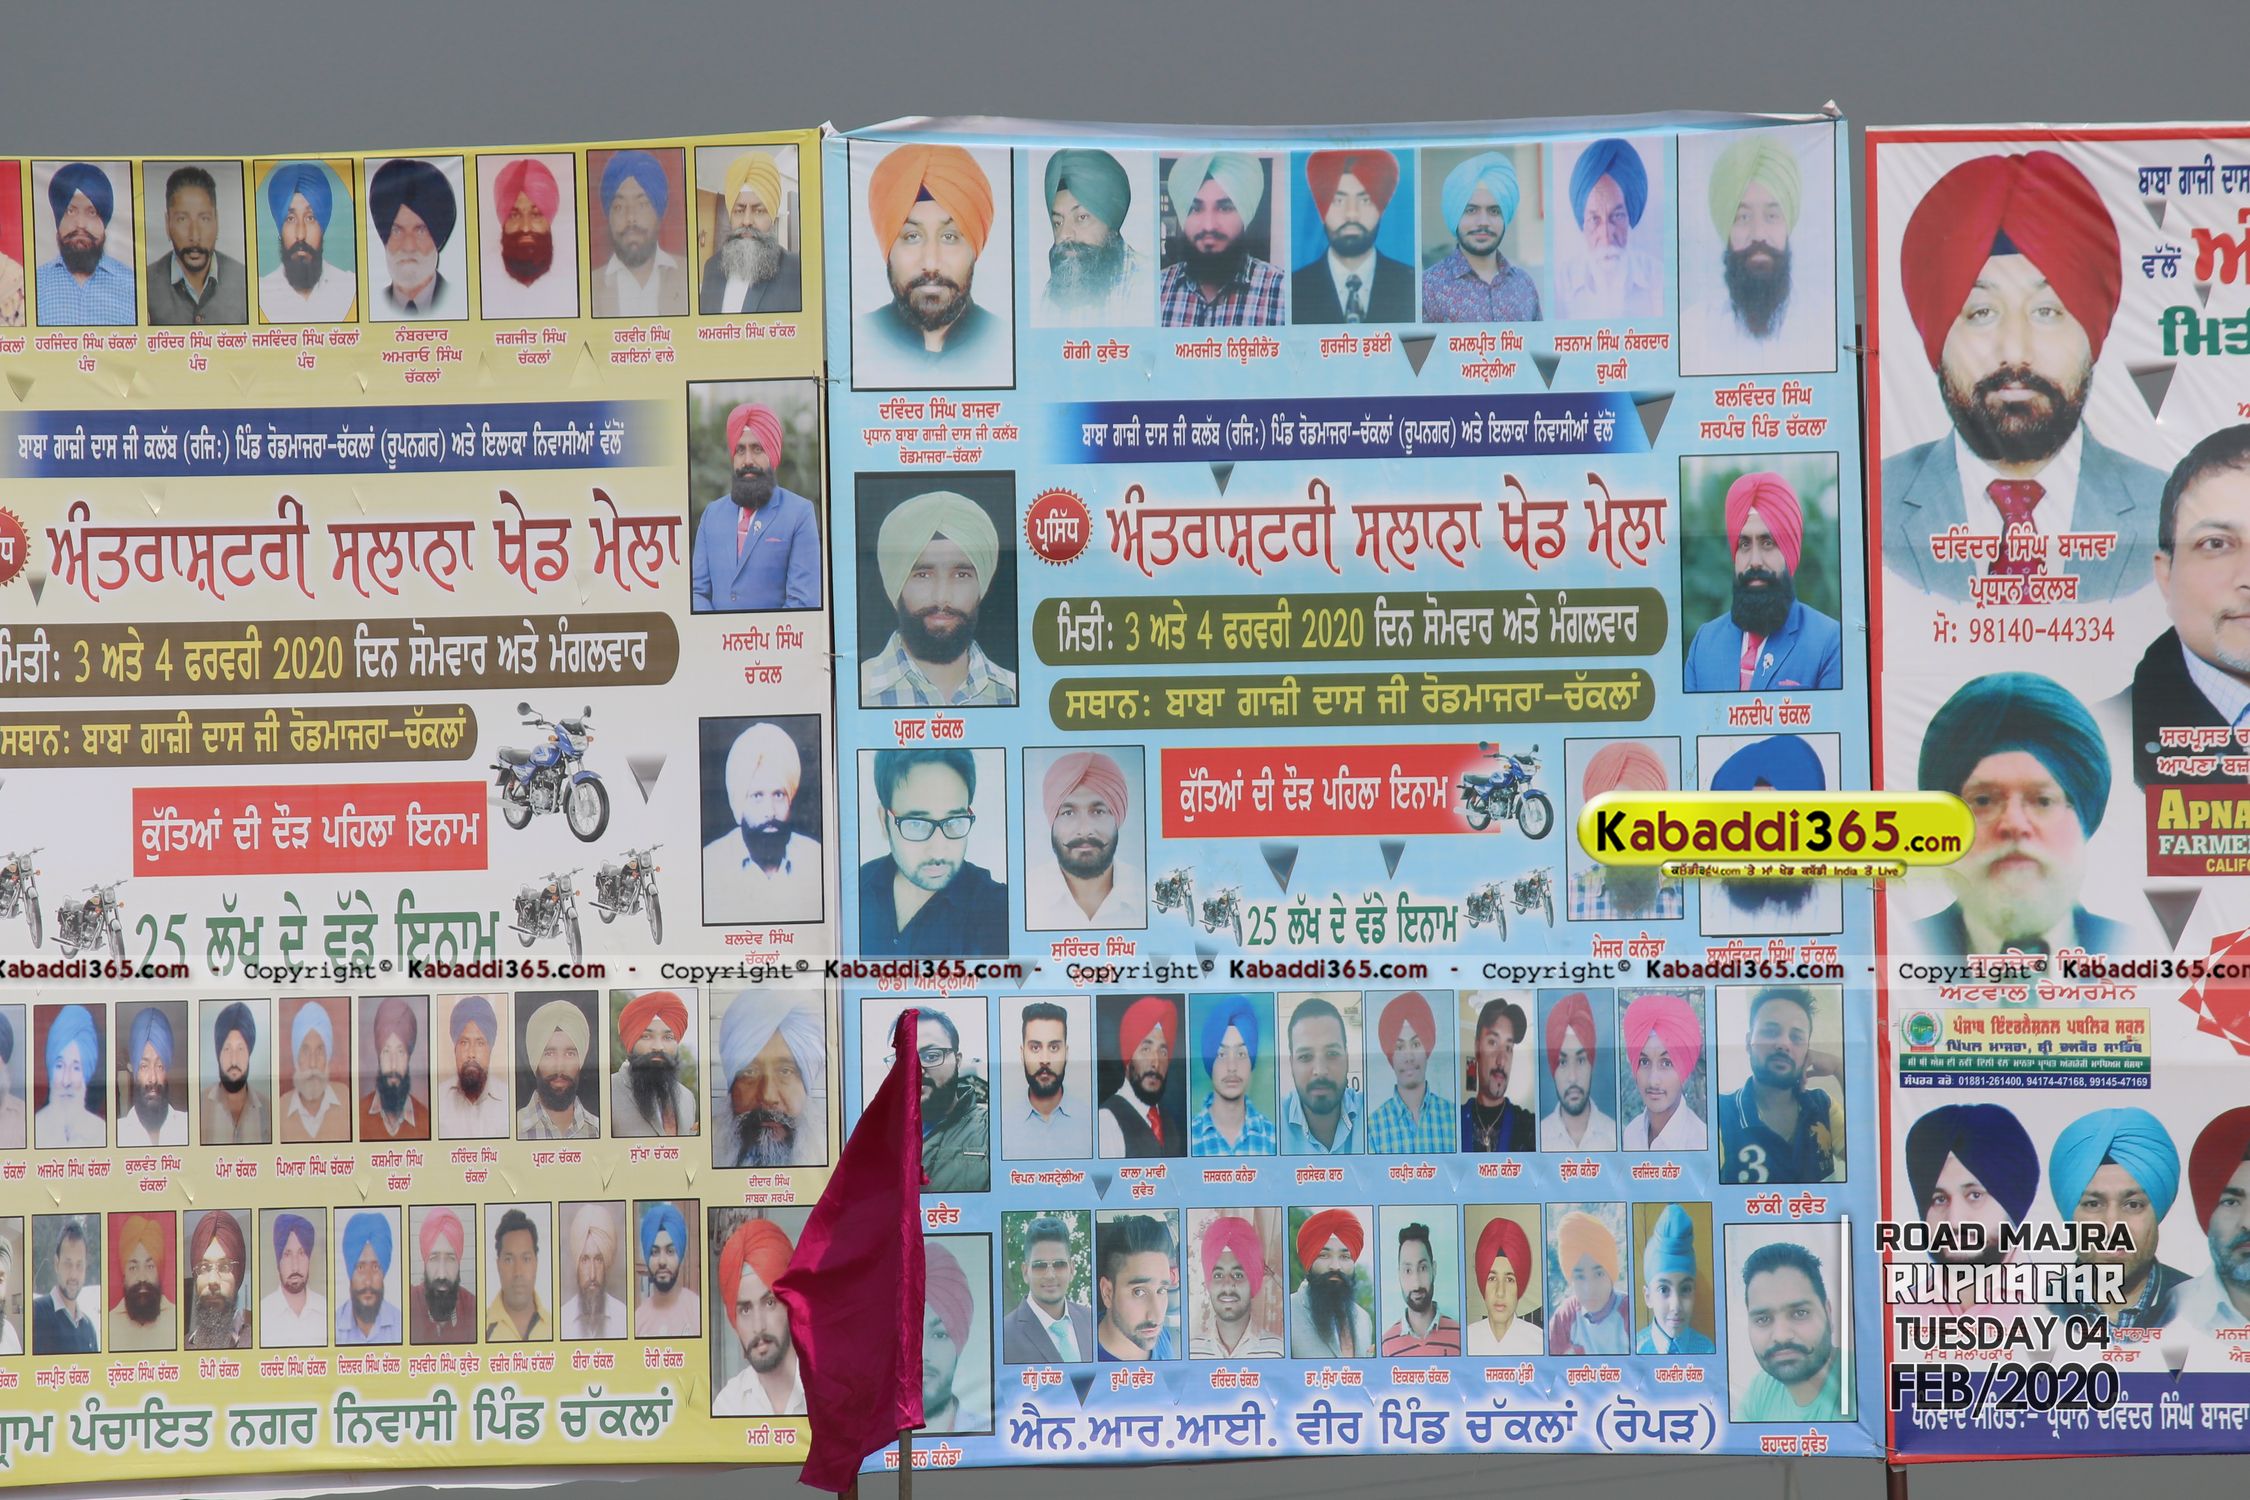 ਹਰਜਿੰਦਰ ਸਿੰਘ ਚੱਕਲਾਂ
ਪੰਚ
ਗੁਰਿੰਦਰ ਸਿੰਘ ਚੱਕਲਾਂ
ਪੰਚ
ਜਸਵਿੰਦਰ ਸਿੰਘ ਚੱਕਲਾਂ
ਪੰਚ
ਨੰਬਰਦਾਰ
ਅਮਰਾਓ ਸਿੰਘ
ਚੱਕਲਾਂ
ਜਗਜੀਤ ਸਿੰਘ
ਚੱਕਲਾਂ
ਹਰਵੀਰ ਸਿੰਘ
ਕਬਾਇਨਾਂ ਵਾਲੇ
ਅਮਰਜੀਤ ਸਿੰਘ ਚੱਕਲ
ਬਾਬਾ ਗਾਜ਼ੀ ਦਾਸ ਜੀ ਕਲੱਬ (ਰਜਿ:) ਪਿੰਡ ਰੋਡਮਾਜਰਾ-ਚੱਕਲਾਂ (ਰੂਪਨਗਰ) ਅਤੇ ਇਲਾਕਾ ਨਿਵਾਸੀਆਂ ਵੱਲੋਂ
ਅੰਤਰਾਸ਼ਟਰੀ ਸਲਾਨਾ ਖੇਡ ਮੇਲਾ
ਮਿਤੀ: 3 ਅਤੇ 4 ਫਰਵਰੀ 2020 ਦਿਨ ਸੋਮਵਾਰ ਅਤੇ ਮੰਗਲਵਾਰ
ਸਥਾਨ: ਬਾਬਾ ਗਾਜ਼ੀ ਦਾਸ ਜੀ ਰੋਡਮਾਜਰਾ-ਚੱਕਲਾਂ
ਕੁੱਤਿਆਂ ਦੀ ਦੌੜ ਪਹਿਲਾ ਇਨਾਮ
25 ਲੱਖ ਦੇ ਵੱਡੇ ਇਨਾਮ
ਮਨਦੀਪ ਸਿੰਘ
ਚੱਕਲ
ਬਲਦੇਵ ਸਿੰਘ
ਚੱਕਲਾਂ
ਅਜਮੇਰ ਸਿੰਘ ਚੱਕਲਾਂ
ਕੁਲਵੰਤ ਸਿੰਘ
ਚੱਕਲਾਂ
ਪੰਮਾ ਚੱਕਲ
ਪਿਆਰਾ ਸਿੰਘ ਚੱਕਲਾਂ
ਕਸ਼ਮੀਰਾ ਸਿੰਘ
ਚੱਕਲਾਂ
ਨਰਿੰਦਰ ਸਿੰਘ
ਚੱਕਲਾਂ
ਪ੍ਰਗਟ ਚੱਕਲ
ਸੁੱਖਾ ਚੱਕਲ
ਦੀਦਾਰ ਸਿੰਘ
ਸਾਬਕਾ ਸਰਪੰਚ
ਜਸਪ੍ਰੀਤ ਚੱਕਲ
ਤ੍ਰਲੋਚਣ ਸਿੰਘ ਚੱਕਲ
ਹੈਪੀ ਚੱਕਲ
ਹਰਚੰਦ ਸਿੰਘ ਚੱਕਲ
ਦਿਲਵਰ ਸਿੰਘ ਚੱਕਲ
ਸੁਖਵੀਰ ਸਿੰਘ ਕੁਵੈਤ
ਵਜ਼ੀਰ ਸਿੰਘ ਚੱਕਲਾਂ
ਬੀਰਾ ਚੱਕਲ
ਹੈਰੀ ਚੱਕਲ
ਮਨੀ ਬਾਠ
ਗ੍ਰਾਮ ਪੰਚਾਇਤ ਨਗਰ ਨਿਵਾਸੀ ਪਿੰਡ ਚੱਕਲਾਂ
ਗੋਗੀ ਕੁਵੈਤ
ਅਮਰਜੀਤ ਨਿਊਜ਼ੀਲੈਂਡ
ਗੁਰਜੀਤ ਡੁਬੱਈ
ਕਮਲਪ੍ਰੀਤ ਸਿੰਘ
ਅਸਟ੍ਰੇਲੀਆ
ਸਤਨਾਮ ਸਿੰਘ ਨੰਬਰਦਾਰ
ਚੁਪਕੀ
ਦਵਿੰਦਰ ਸਿੰਘ ਬਾਜਵਾ
ਪ੍ਰਧਾਨ ਬਾਬਾ ਗਾਜ਼ੀ ਦਾਸ ਜੀ ਕਲੱਬ
ਰੋਡਮਾਜਰਾ-ਚੱਕਲਾਂ
ਬਲਵਿੰਦਰ ਸਿੰਘ
ਸਰਪੰਚ ਪਿੰਡ ਚੱਕਲਾ
ਬਾਬਾ ਗਾਜ਼ੀ ਦਾਸ ਜੀ ਕਲੱਬ (ਰਜਿ:) ਪਿੰਡ ਰੋਡਮਾਜਰਾ-ਚੱਕਲਾਂ (ਰੂਪਨਗਰ) ਅਤੇ ਇਲਾਕਾ ਨਿਵਾਸੀਆਂ ਵੱਲੋਂ
ਪ੍ਰਸਿੱਧ
ਅੰਤਰਾਸ਼ਟਰੀ ਸਲਾਨਾ ਖੇਡ ਮੇਲਾ
ਮਿਤੀ: 3 ਅਤੇ 4 ਫਰਵਰੀ 2020 ਦਿਨ ਸੋਮਵਾਰ ਅਤੇ ਮੰਗਲਵਾਰ
ਸਥਾਨ: ਬਾਬਾ ਗਾਜ਼ੀ ਦਾਸ ਜੀ ਰੋਡਮਾਜਰਾ-ਚੱਕਲਾਂ
ਪ੍ਰਗਟ ਚੱਕਲ
ਮਨਦੀਪ ਚੱਕਲ
ਕੁੱਤਿਆਂ ਦੀ ਦੌੜ ਪਹਿਲਾ ਇਨਾਮ
25 ਲੱਖ ਦੇ ਵੱਡੇ ਇਨਾਮ
ਲਾਡੀ ਅਸਟ੍ਰੇਲੀਆ
ਸੁਰਿੰਦਰ ਸਿੰਘ
ਮੇਜਰ ਕਨੈਡਾ
ਬਲਵਿੰਦਰ ਸਿੰਘ ਚੱਕਲ
ਵਿਪਨ ਅਸਟ੍ਰੇਲੀਆ
ਕਾਲਾ ਮਾਵੀ
ਕੁਵੈਤ
ਜਸਕਰਨ ਕਨੈਡਾ
ਗੁਰਸੇਵਕ ਬਾਠ
ਹਰਪ੍ਰੀਤ ਕਨੈਡਾ
ਅਮਨ ਕਨੈਡਾ
ਤ੍ਰਲੋਕ ਕਨੈਡਾ
ਵਰਜਿੰਦਰ ਕਨੈਡਾ
ਲੱਕੀ ਕੁਵੈਤ
ਕੁਵੈਤ
ਗੱਗੂ ਚੱਕਲ
ਰੂਪੀ ਕੁਵੈਤ
ਵਰਿੰਦਰ ਚੱਕਲ
ਡਾ. ਸੁੱਖਾ ਚੱਕਲ
ਇਕਬਾਲ ਚੱਕਲ
ਜਸਕਰਨ ਮੁੰਡੀ
ਗੁਰਦੀਪ ਚੱਕਲ
ਪਰਮਵੀਰ ਚੱਕਲ
ਬਹਾਦਰ ਕੁਵੈਤ
ਐਨ.ਆਰ.ਆਈ. ਵੀਰ ਪਿੰਡ ਚੱਕਲਾਂ (ਰੋਪੜ)
ਬਾਬਾ ਗਾਜੀ ਦਾਸ
ਵੱਲੋਂ
ਦਵਿੰਦਰ ਸਿੰਘ ਬਾਜਵਾ
ਪ੍ਰਧਾਨ ਕਲੱਬ
ਮੋ: 98140-44334
ਸਰਪ੍ਰਸਤ
ਆਪਣਾ
APNA
FARME
ਅਟਵਾਲ ਚੇਅਰਮੈਨ
ਪੰਜਾਬ ਇੰਟਰਨੈਸ਼ਨਲ ਪਬਲਿਕ ਸਕੂਲ
ਪਿੱਪਲ ਮਾਜਰਾ, ਸ਼੍ਰੀ ਚਮਕੌਰ ਸਾਹਿਬ
ਸੰਪਰਕ ਕਰੋ: 01881-261400, 94174-47168, 99145-47169
ਕਨੈਡਾ
ਧੰਨਵਾਦ ਸਹਿਤ:- ਪ੍ਰਧਾਨ ਦਵਿੰਦਰ ਸਿੰਘ ਬਾਜਵਾ
Kabaddi365.com
ਕਬੱਡੀ੩੬੫.com 'ਤੇ ਮਾਂ ਖੇਡ ਕਬੱਡੀ India ਤੋਂ Live
Kabaddi365.com - Copyright© Kabaddi365.com - Copyright© Kabaddi365.com - Copyright© Kabaddi365.com - Copyright© Kabaddi365.com - Copyright© Kabaddi365.com
ROAD MAJRA
RUPNAGAR
TUESDAY 04
FEB/2020